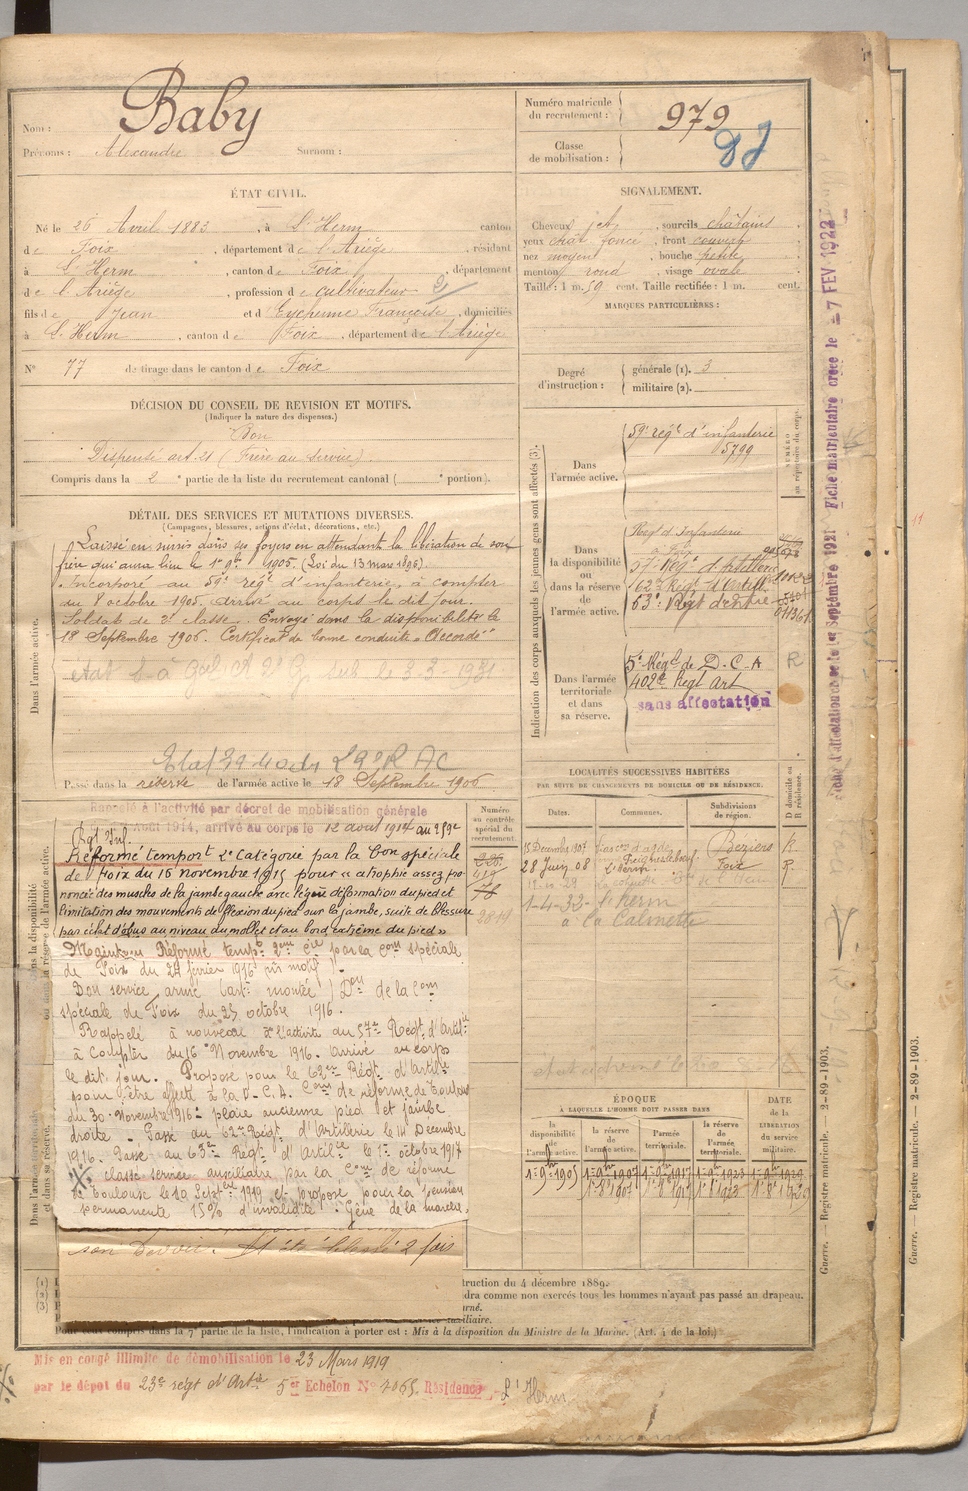 Nom : Baby
Prénoms : Alexandre Surnom :
Numéro matricule du recrutement : 979
Classe de mobilisation :
ÉTAT CIVIL.
Né le 26 Avril 1883, à St Herm canton
de Foix, département de l'Ariège, résidant
à St Herm, canton de Foix, département
de l'Ariège, profession de cultivateur
fils de Jean et d'Eychenne Françoise, domiciliés
à St Herm, canton de Foix, département de l'Ariège
N° 77 de tirage dans le canton de Foix
SIGNALEMENT.
Cheveux , sourcils châtains
yeux chat. foncé, front couvert
nez moyen, bouche petite
menton rond, visage ovale
Taille : 1 m. 59 cent. Taille rectifiée : 1 m. cent.
MARQUES PARTICULIÈRES :
Degré d'instruction : générale (1). 3
militaire (2).
DÉCISION DU CONSEIL DE REVISION ET MOTIFS.
(Indiquer la nature des dispenses.)
Bon
Dispensé art. 21 (Frère au service)
Compris dans la 2e partie de la liste du recrutement cantonal ( e portion).
DÉTAIL DES SERVICES ET MUTATIONS DIVERSES.
(Campagnes, blessures, actions d'éclat, décorations, etc.)
Laissé en sursis dans ses foyers en attendant la libération de son
frère qui aura lieu le 1er 9bre 1905. (Loi du 13 mars 1896).
Incorporé au 59e régt d'infanterie, à compter
du 8 octobre 1905. Arrivé au corps le dit jour.
Soldat de 2e classe. Envoyé dans la disponibilité le
18 Septembre 1906. Certificat de bonne conduite "Accordé"
Passé dans la réserve de l'armée active le 18 Septembre 1906
Dans l'armée active.
Rappelé à l'activité par décret de mobilisation générale
Août 1914, arrivé au corps le 12 août 1914 au 259e
Rgt Inf.
Réformé tempor. 2e Catégorie par la Con spéciale
de Foix du 15 novembre 1915 pour « atrophie assez pro-
noncée des muscles de la jambe gauche avec légère déformation du pied et
limitation des mouvements de flexion du pied sur la jambe, suite de blessure
par éclat d'obus au niveau du mollet et au bord externe du pied »
Maintenu Réformé tempre 2me Cie par la Com spéciale
de Foix du 24 février 1916
Bon service armé (arti montée) Don de la Com
spéciale de Foix du 25 octobre 1916.
Rappelé à nouveau à l'activité au 57me Régt d'Artie
à compter du 16 Novembre 1916. Arrivé au corps
le dit jour. Proposé pour le 62me Régt d'Artie
pour être affecté à la D.C.A. Com de réforme de Toulouse
du 30 Novembre 1916 : plaie ancienne pied et jambe
droite. Passé au 62me Régt d'Artillerie le 14 Décembre
1916. Passé au 63me Régt d'Artie le 1er octobre 1917
classé service auxiliaire par la Com de réforme
de Toulouse le 19 Septbre 1919 et proposé pour la pension
permanente 15% d'invalidité. Gêne de la marche.
son devoir. A été blessé 2 fois
Numéro au contrôle spécial du recrutement.
Indication des corps auxquels les jeunes gens sont affectés (3).
Dans l'armée active.
59e régt d'infanterie
5799
Dans la disponibilité ou dans la réserve de l'armée active.
Régt d'Infanterie
à Foix
57e Régt d'Artillerie
62me Régt d'Artill.
63e Régt d'Artie
Dans l'armée territoriale et dans sa réserve.
5e Régt de D.C.A
402e Régt Art
sans affectation
R
LOCALITÉS SUCCESSIVES HABITÉES
PAR SUITE DE CHANGEMENTS DE DOMICILE OU DE RÉSIDENCE.
Dates. Communes. Subdivisions de région. D domicile ou R résidence.
15 Décembre 1907 Béziers R.
28 Juin 08 L'Herm Foix R.
1-4-32 - l'herm
à la Calmette
ÉPOQUE
À LAQUELLE L'HOMME DOIT PASSER DANS
la disponibilité de l'armée active. la réserve de l'armée active. l'armée territoriale. la réserve de l'armée territoriale.
DATE de la LIBÉRATION du service militaire.
1-9bre-1905 1-9bre-1907 1-9bre-1917 1-9bre-1923 1-9bre-1929
truction du 4 décembre 1889.
dra comme non exercés tous les hommes n'ayant pas passé au drapeau.
Pour ceux compris dans la 7e partie de la liste, l'indication à porter est : Mis à la disposition du Ministre de la Marine. (Art. 4 de la loi.)
Mis en congé illimité de démobilisation le 23 Mars 1919
par le dépôt du 23e régt d'Artie 5er Echelon N° 4065 Résidence St Herm
Guerre. — Registre matricule. — 2-89-1903.
Guerre. — Registre matricule. — 2-89-1903.
Fiche matriculaire créée le 7 FEV 1922